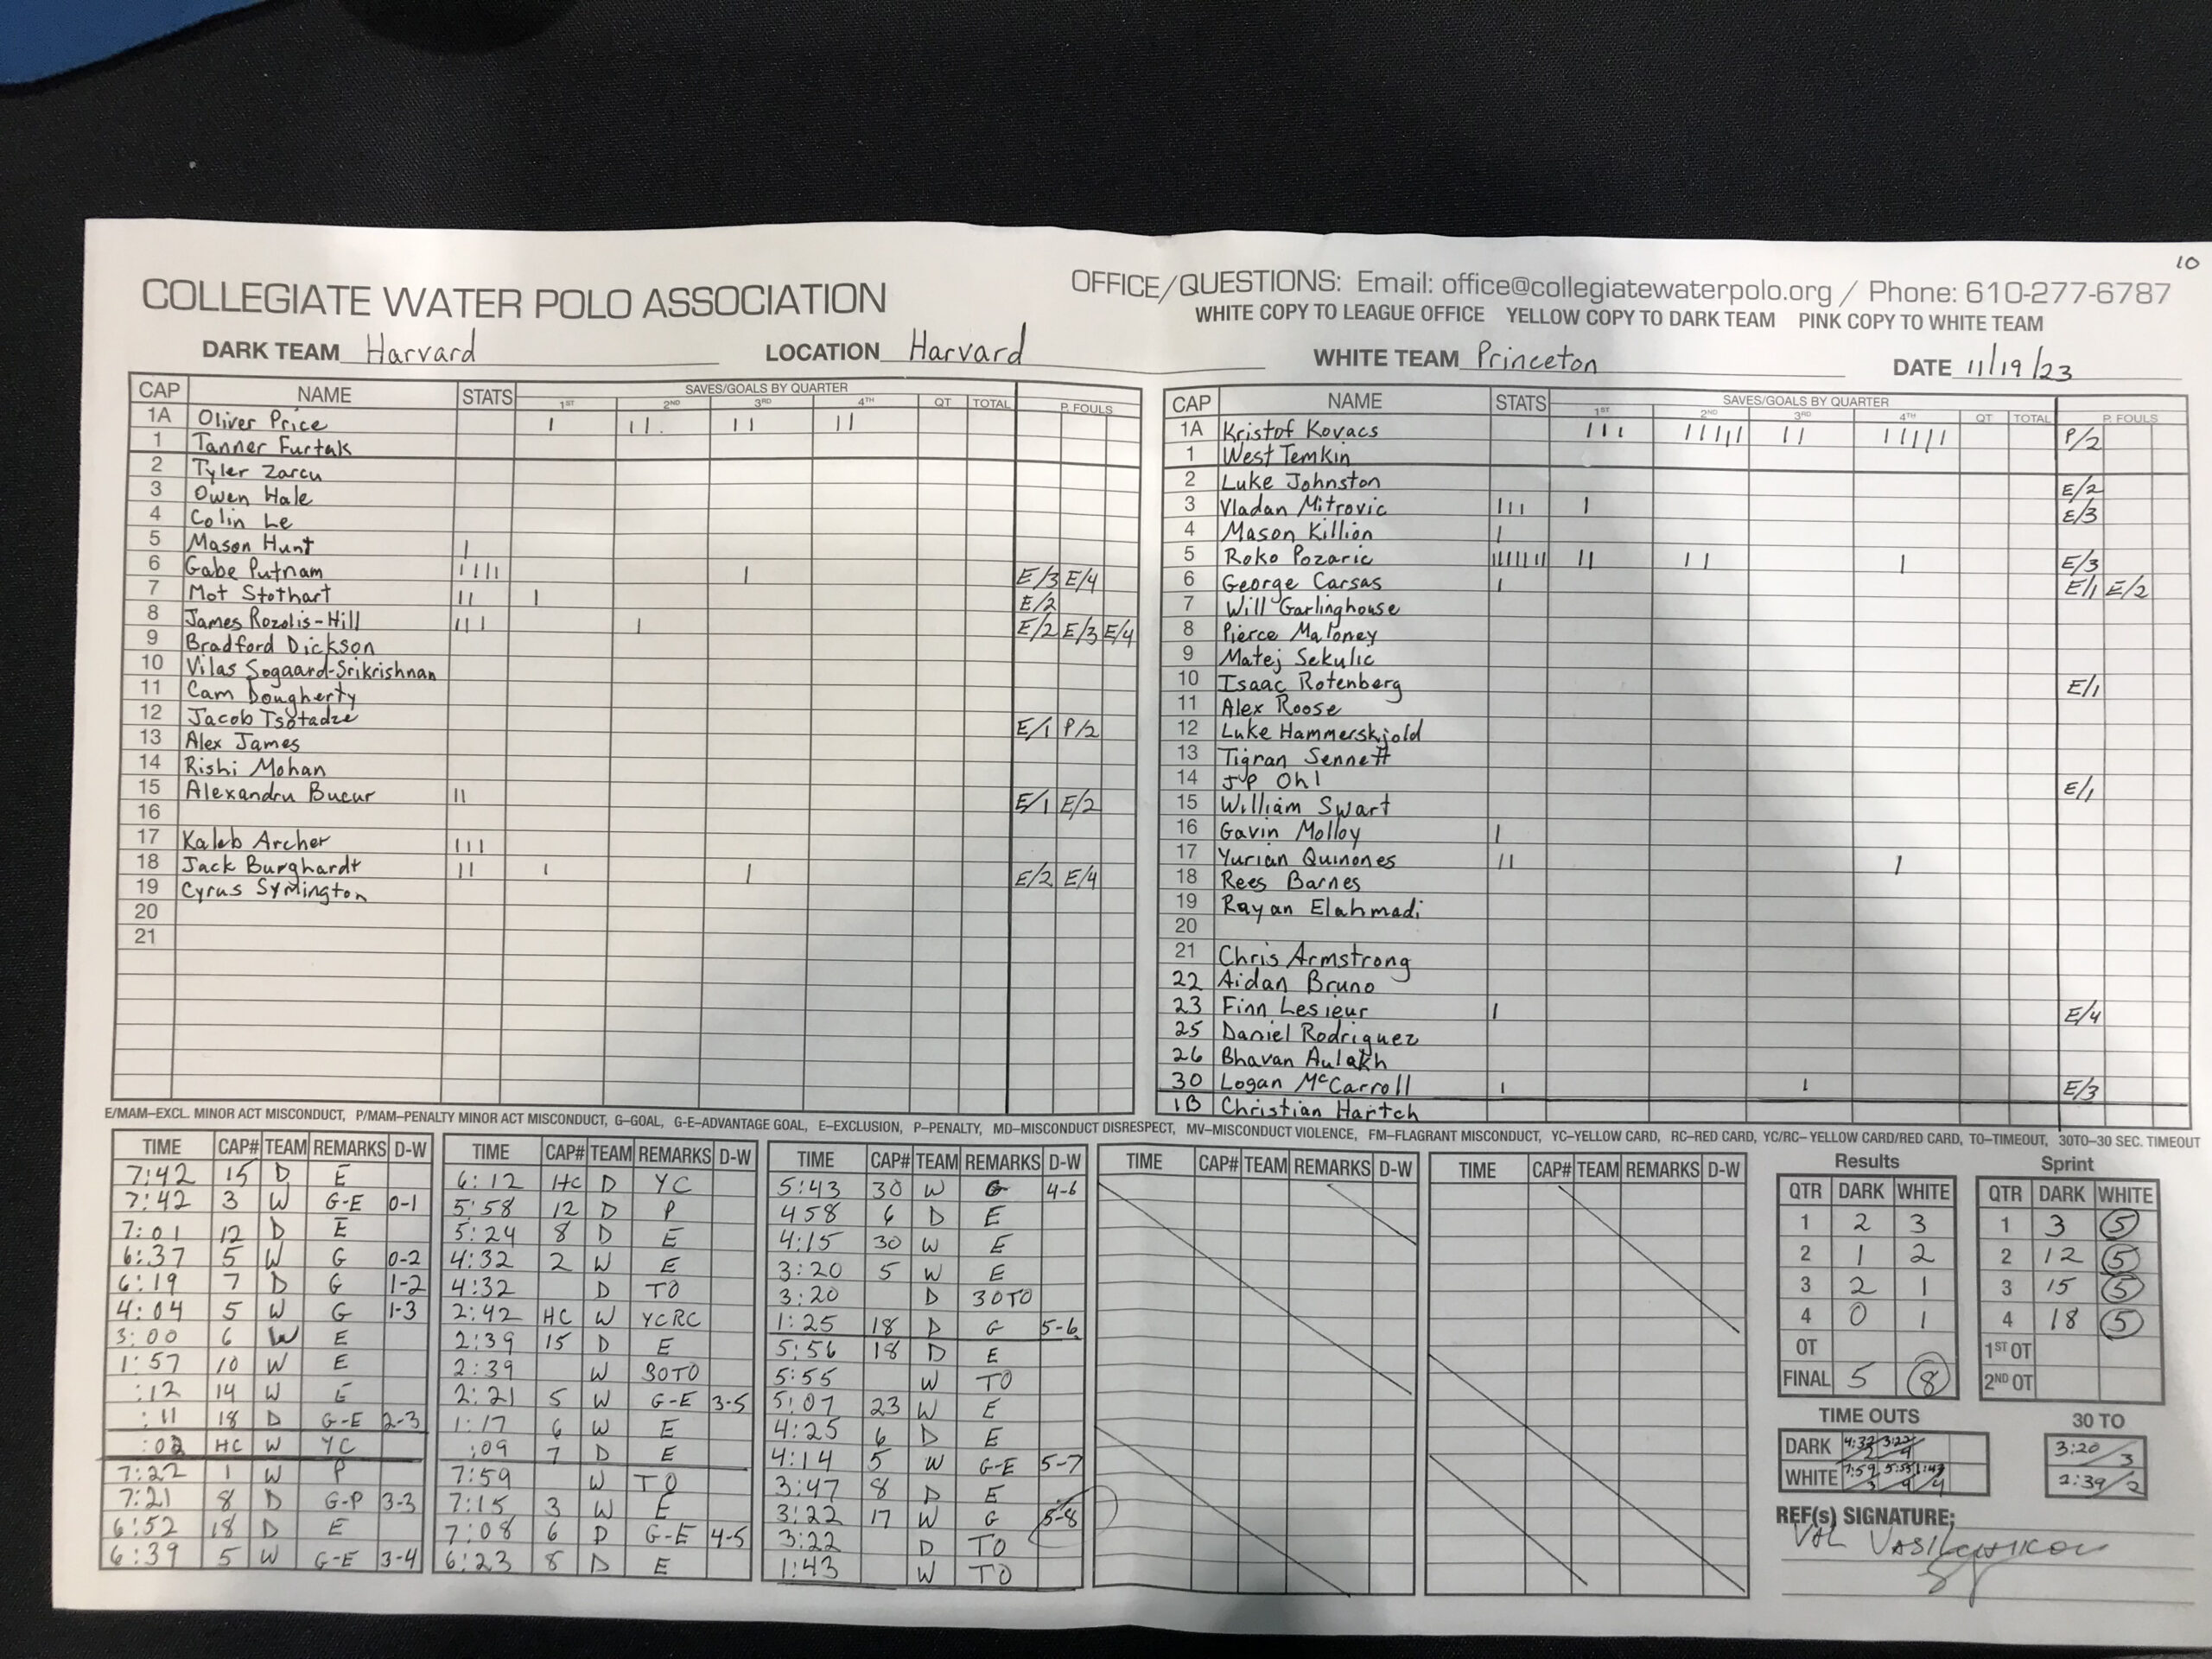 10
COLLEGIATE WATER POLO ASSOCIATION
OFFICE/QUESTIONS: Email: office@collegiatewaterpolo.org / Phone: 610-277-6787
WHITE COPY TO LEAGUE OFFICE YELLOW COPY TO DARK TEAM PINK COPY TO WHITE TEAM
DARK TEAM Harvard LOCATION Harvard WHITE TEAM Princeton DATE 11/19/23
CAP NAME STATS SAVES/GOALS BY QUARTER 1ST 2ND 3RD 4TH QT TOTAL P. FOULS
1A Oliver Price I II II II
1 Tanner Furtak
2 Tyler Zarcu
3 Owen Hale
4 Colin Le
5 Mason Hunt I
6 Gabe Putnam IIII I E/3 E/4
7 Mot Stothart II I E/2
8 James Rozolis-Hill III I E/2 E/3 E/4
9 Bradford Dickson
10 Vilas Sogaard-Srikrishnan
11 Cam Dougherty
12 Jacob Tsotadze E/1 P/2
13 Alex James
14 Rishi Mohan
15 Alexandru Bucur II E/1 E/2
16
17 Kaleb Archer III
18 Jack Burghardt II I I E/2 E/4
19 Cyrus Symington
20
21
CAP NAME STATS SAVES/GOALS BY QUARTER 1ST 2ND 3RD 4TH QT TOTAL P. FOULS
1A Kristof Kovacs III IIIII II IIIII P/2
1 West Temkin
2 Luke Johnston E/2
3 Vladan Mitrovic III I E/3
4 Mason Killion I
5 Roko Pozaric IIIIIII II II I E/3
6 George Carsas I E/1 E/2
7 Will Garlinghouse
8 Pierce Maloney
9 Matej Sekulic
10 Isaac Rotenberg E/1
11 Alex Roose
12 Luke Hammerskjold
13 Tigran Sennett
14 JP Ohl E/1
15 William Swart
16 Gavin Molloy I
17 Yurian Quinones II I
18 Rees Barnes
19 Rayan Elahmadi
20
21 Chris Armstrong
22 Aidan Bruno
23 Finn Lesieur I E/4
25 Daniel Rodriguez
26 Bhavan Aulakh
30 Logan McCarroll I I E/3
1B Christian Hartch
E/MAM–EXCL. MINOR ACT MISCONDUCT, P/MAM–PENALTY MINOR ACT MISCONDUCT, G–GOAL, G-E–ADVANTAGE GOAL, E–EXCLUSION, P–PENALTY, MD–MISCONDUCT DISRESPECT, MV–MISCONDUCT VIOLENCE, FM–FLAGRANT MISCONDUCT, YC–YELLOW CARD, RC–RED CARD, YC/RC–YELLOW CARD/RED CARD, TO–TIMEOUT, 30TO–30 SEC. TIMEOUT
TIME CAP# TEAM REMARKS D-W
7:42 15 D E
7:42 3 W G-E 0-1
7:01 12 D E
6:37 5 W G 0-2
6:19 7 D G 1-2
4:04 5 W G 1-3
3:00 6 W E
1:57 10 W E
:12 14 W E
:11 18 D G-E 2-3
:02 HC W YC
7:22 1 W P
7:21 8 D G-P 3-3
6:52 18 D E
6:39 5 W G-E 3-4
TIME CAP# TEAM REMARKS D-W
6:12 HC D YC
5:58 12 D P
5:24 8 D E
4:32 2 W E
4:32 D TO
2:42 HC W YCRC
2:39 15 D E
2:39 W 30TO
2:21 5 W G-E 3-5
1:17 6 W E
:09 7 D E
7:59 W TO
7:15 3 W E
7:08 6 D G-E 4-5
6:23 8 D E
TIME CAP# TEAM REMARKS D-W
5:43 30 W G 4-6
458 6 D E
4:15 30 W E
3:20 5 W E
3:20 D 30TO
1:25 18 D G 5-6
5:56 18 D E
5:55 W TO
5:07 23 W E
4:25 6 D E
4:14 5 W G-E 5-7
3:47 8 D E
3:22 17 W G 5-8
3:22 D TO
1:43 W TO
TIME CAP# TEAM REMARKS D-W
TIME CAP# TEAM REMARKS D-W
Results
QTR DARK WHITE
1 2 3
2 1 2
3 2 1
4 0 1
OT
FINAL 5 8
Sprint
QTR DARK WHITE
1 3 5
2 12 5
3 15 5
4 18 5
1ST OT
2ND OT
TIME OUTS
DARK 4:32/2 3:22/4
WHITE 7:59/3 5:55/4 1:43/4
30 TO
3:20/3
2:39/2
REF(s) SIGNATURE:
VAL